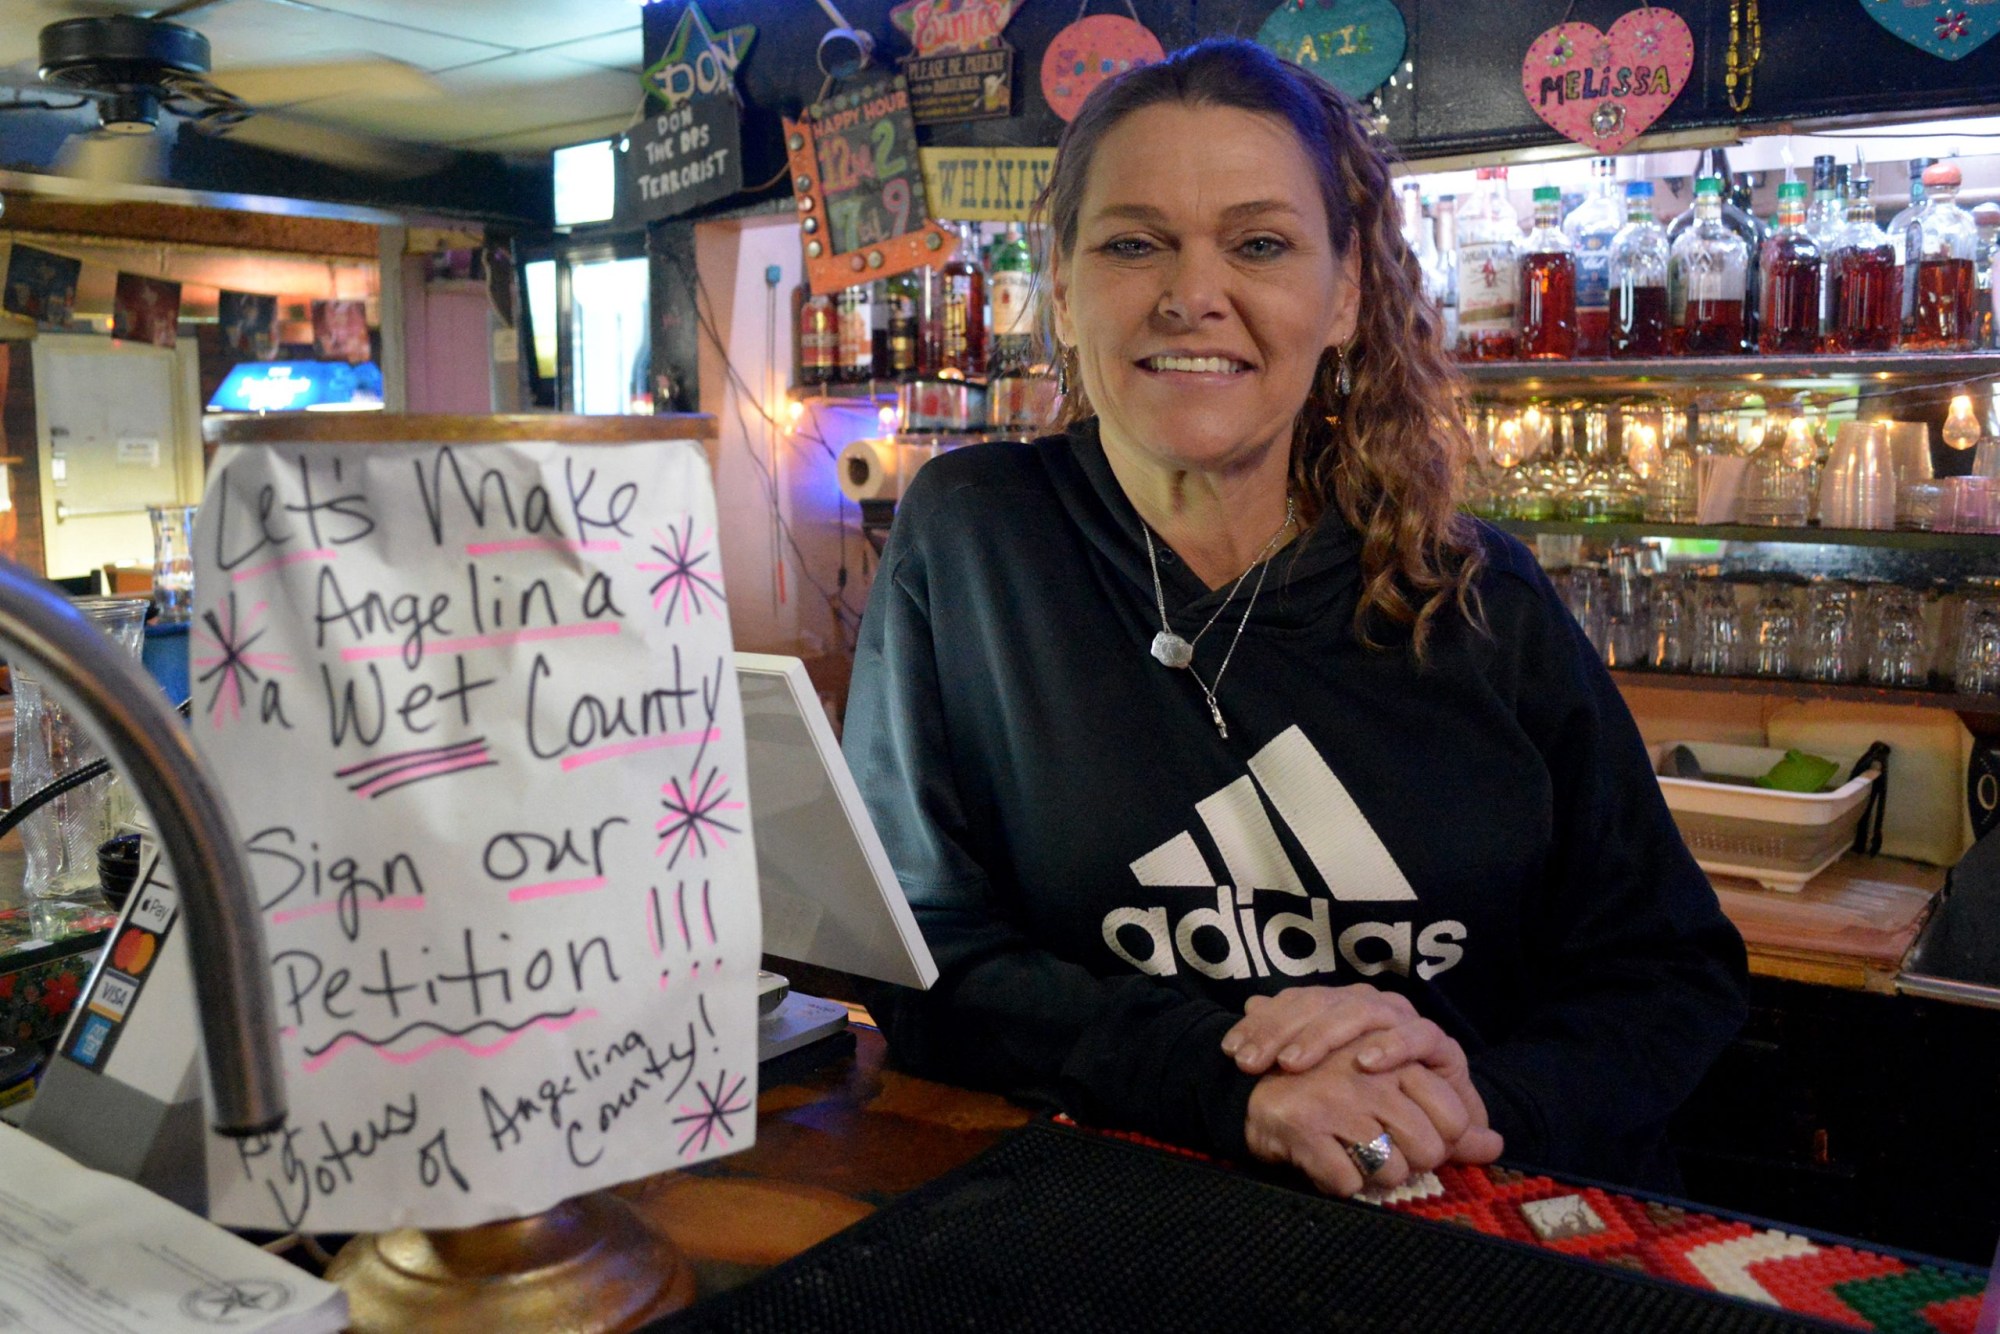 Let's Make
Angelina
a Wet County
Sign our
Petition !!!
by Voters of Angelina
County!
DON
DON
THE DPS
TERRORIST
HAPPY HOUR
12 2
7 9
PLEASE BE PATIENT
WHININ
KATIE
MELISSA
adidas
Pay
VISA